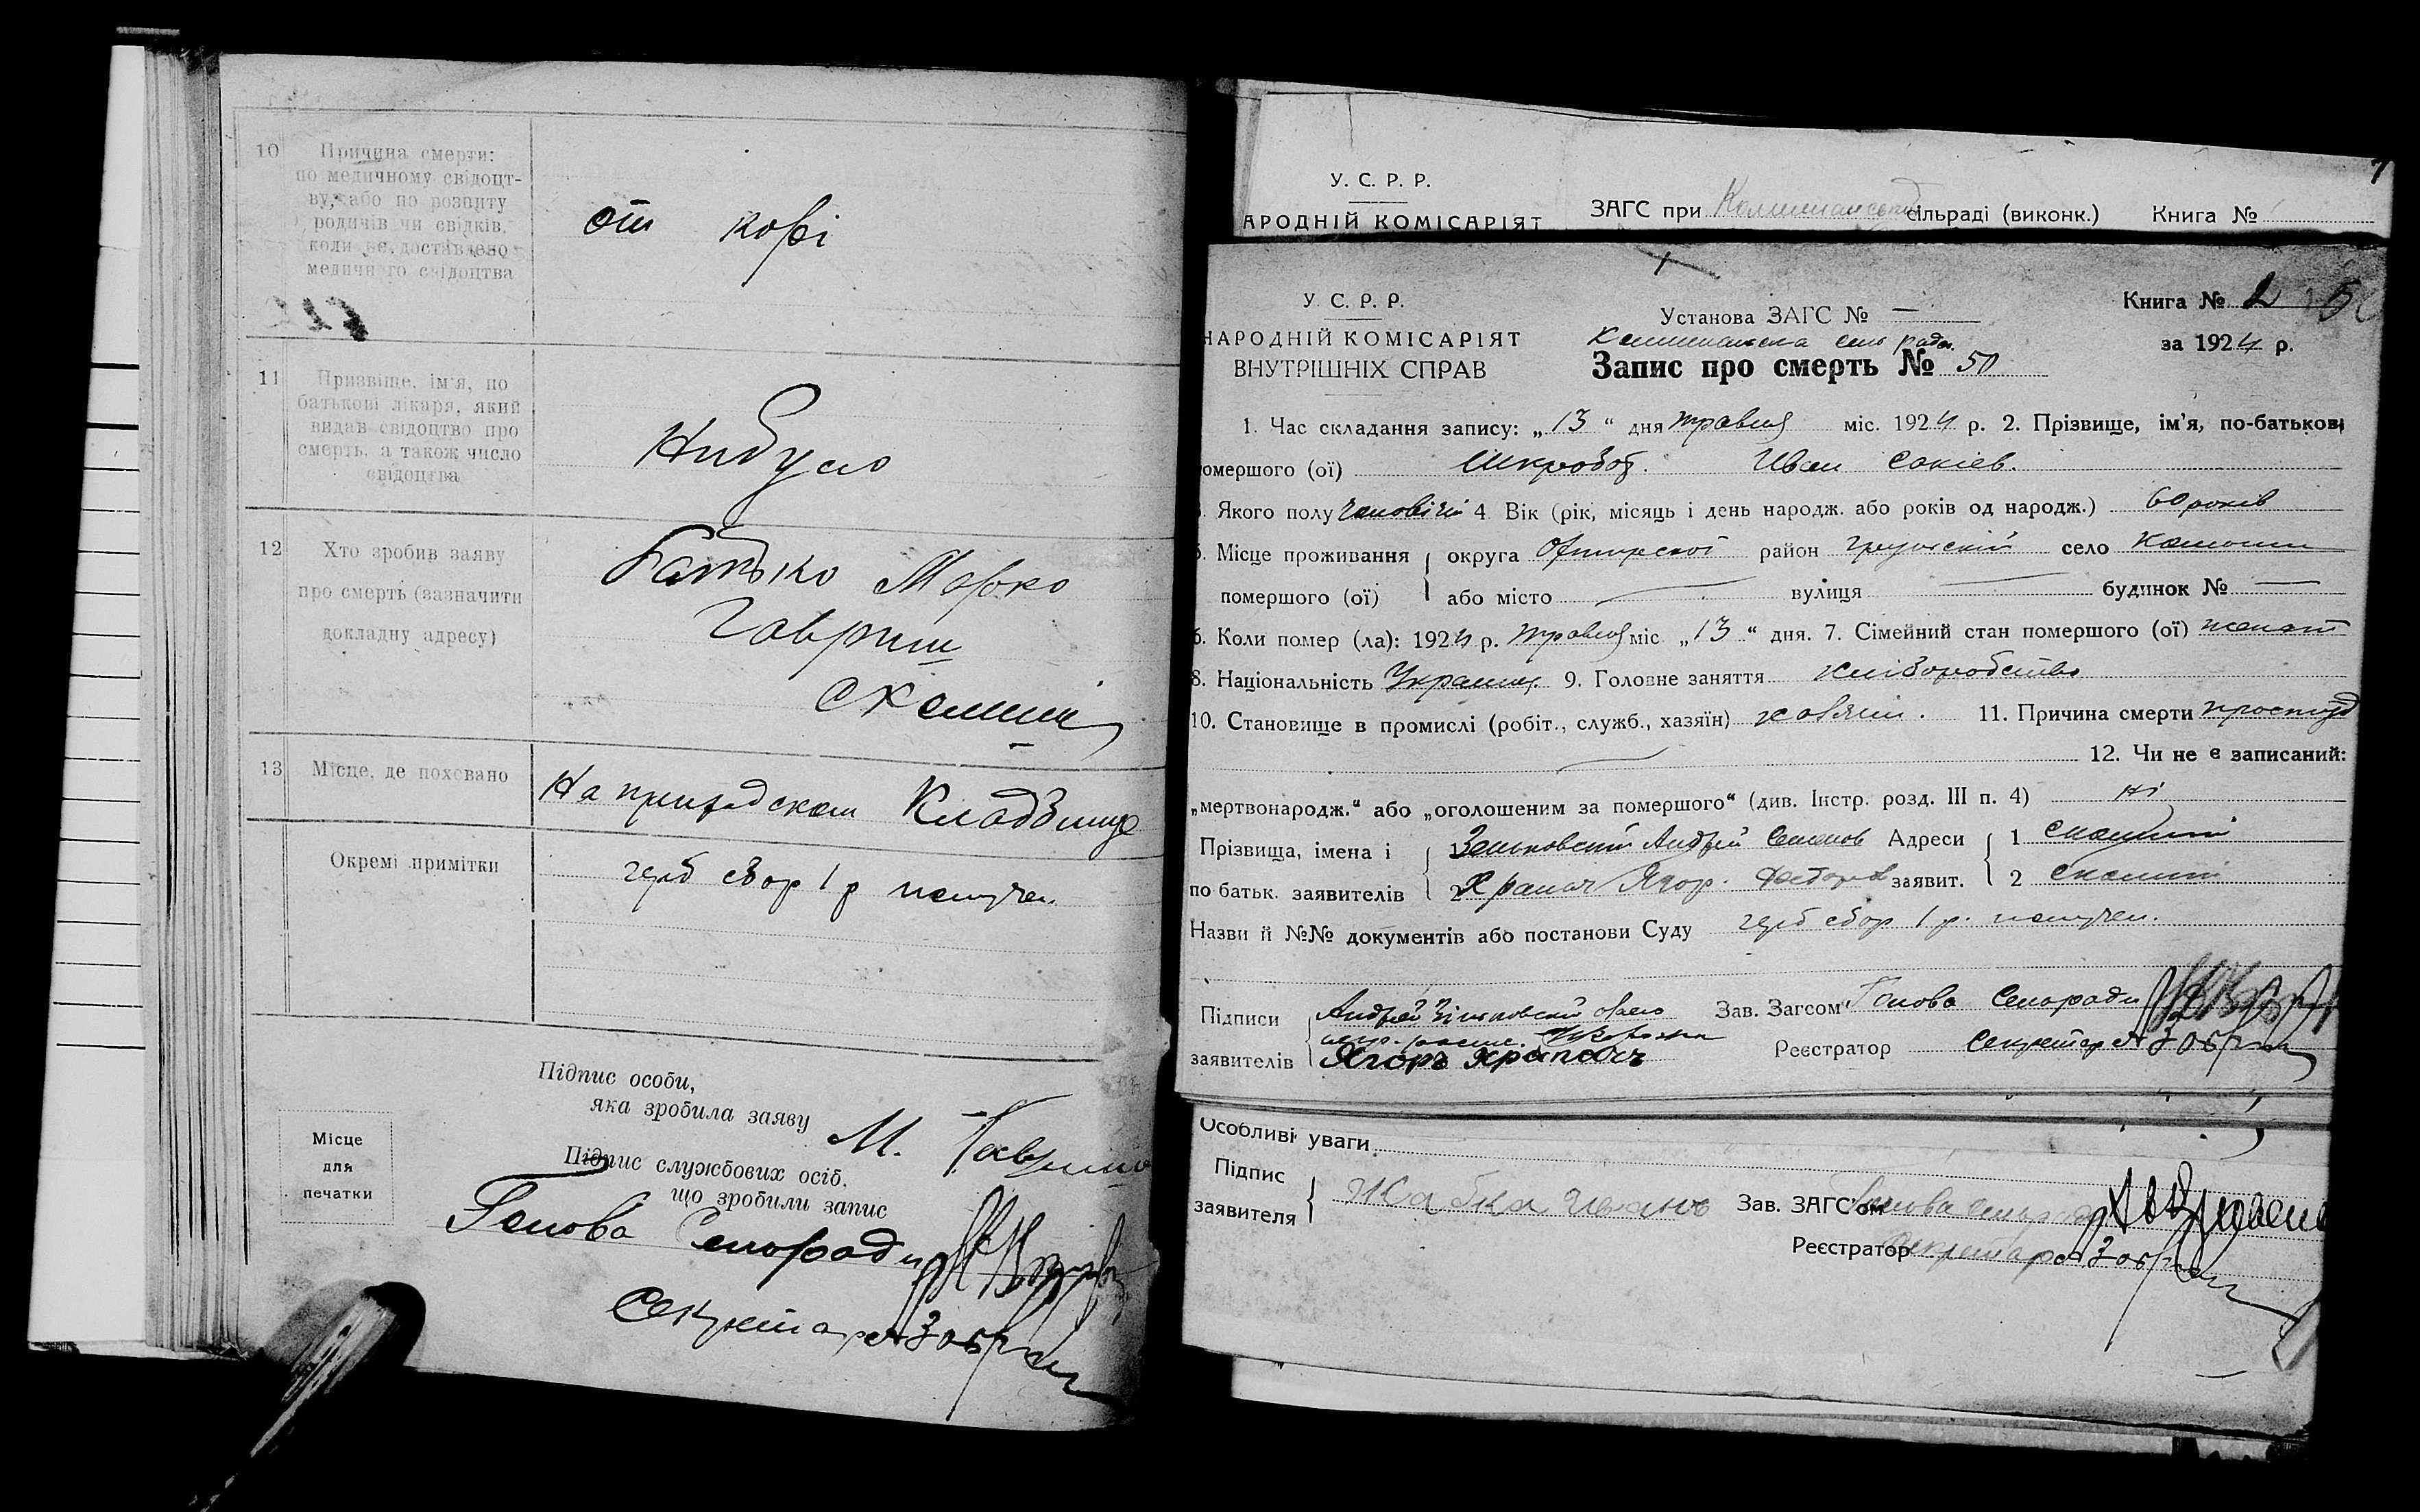 10 Причина смерти:
по медичному свідоцт-
ву, або по розпиту
родичів чи свідків,
коли не доставлено
медичного свідоцтва
от корі
11 Призвіще, ім'я, по
батькові лікаря, який
видав свідоцтво про
смерть, а також число
свідоцтва
Нибуло
12 Хто зробив заяву
про смерть (зазначити
докладну адресу)
Батько Марко
Гавриш
13 Місце, де поховано
На Кладвище
Окремі примітки
герб сбор 1 р получен.
Підпис особи,
яка зробила заяву
М.
Місце
для
печатки
Підпис службових осіб,
що зробили запис
Голова Сельради
Секретар
У. С. Р. Р.
АРОДНІЙ КОМІСАРІЯТ
ЗАГС при сільраді (виконк.) Книга №
У. С. Р. Р.
НАРОДНІЙ КОМІСАРІЯТ
ВНУТРІШНІХ СПРАВ
Установа ЗАГС № —
сель рада.
Запис про смерть № 50
Книга № 2
за 1924 р.
1. Час складання запису: „13“ дня травня міс. 1924 р. 2. Прізвище, ім'я, по-батькові
омершого (ої) Шкробот. Иван
. Якого полу чоловічій 4 Вік (рік, місяць і день народж. або років од народж.) 60 років
5. Місце проживання округа район село
помершого (ої) або місто вулиця будинок № —
6. Коли помер (ла): 1924 р. травня міс „13“ дня. 7. Сімейний стан помершого (ої) женат
8. Національність 9. Головне заняття хліборобство
10. Становище в промислі (робіт., служб., хазяїн) хазяїн. 11. Причина смерти простуд
12. Чи не є записаний:
„мертвонародж.“ або „оголошеним за помершого“ (див. Інстр. розд. III п. 4) ні
Прізвища, імена і 1 Зеньковский Андрей Семенов Адреси 1
по батьк. заявителів 2 Храпач Ягор. Федоров заявит. 2
Назви й №№ документів або постанови Суду герб сбор 1 р. получен.
Підписи Андрей Зиньковский Зав. Загсом Голова Сельради
заявителів Ягоръ Храпачъ Реєстратор Секретар
Особливі уваги
Підпис
заявителя Жабка Иванъ Зав. ЗАГС'ом Голова
Реєстратор Секретар